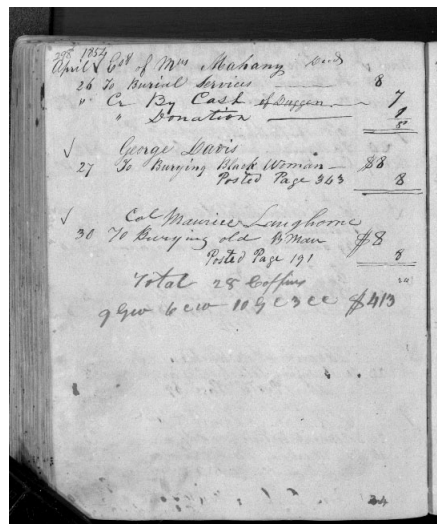 298 1854
April √ Est of Mrs Mahany Decd
26 To Burial Services 8
" Cr By Cash of Duggan 7
" Donation 1
8
√ George Davis
27 To Burying Black Woman $8
Posted Page 343 8
√ Col Maurice Langhorne
30 To Burying old B Man $8
Posted Page 191 8
Total 28 Coffins
$413